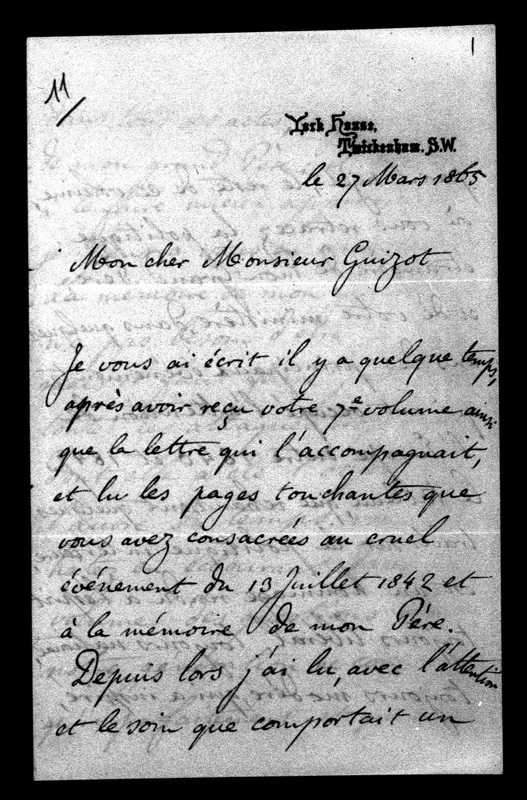 11/
1
York House,
Twickenham. S.W.
le 27 Mars 1865
Mon cher Monsieur Guizot
Je vous ai écrit il y a quelque temps,
après avoir reçu votre 7e volume ainsi
que la lettre qui l'accompagnait,
et lu les pages touchantes que
vous avez consacrées au cruel
événement du 13 Juillet 1842 et
à la mémoire de mon Père.
Depuis lors j'ai lu, avec l'attention
et le soin que comportait un